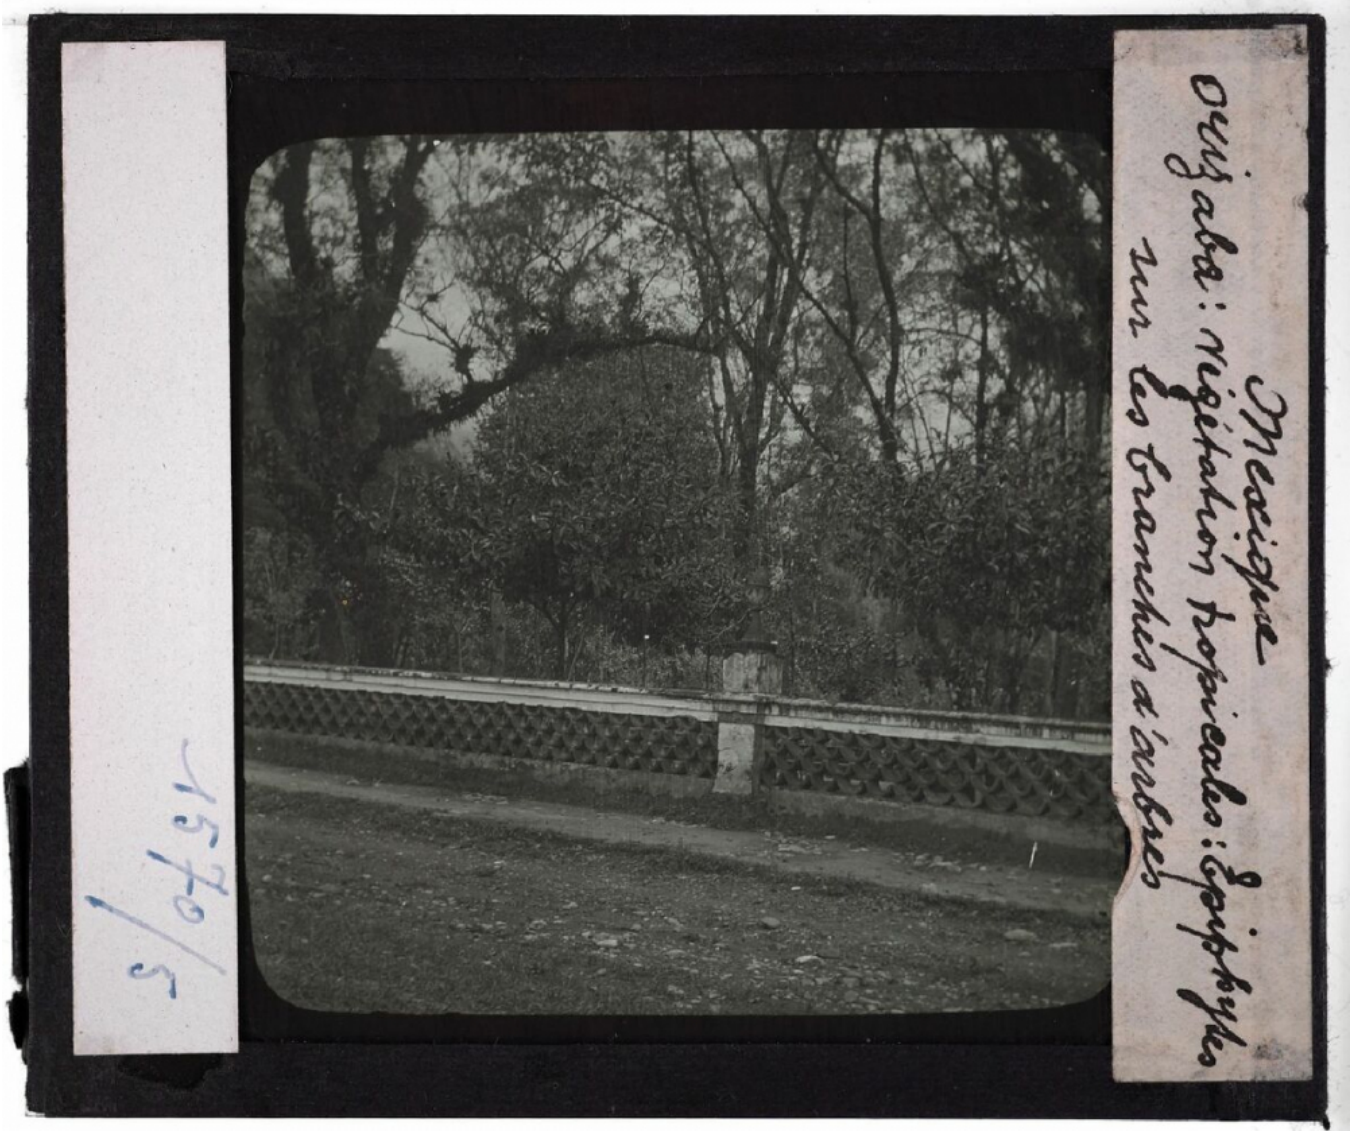 Mexique
Orizaba: Végétation tropicales: Epiphytes
sur les branches d'arbres
1570/5